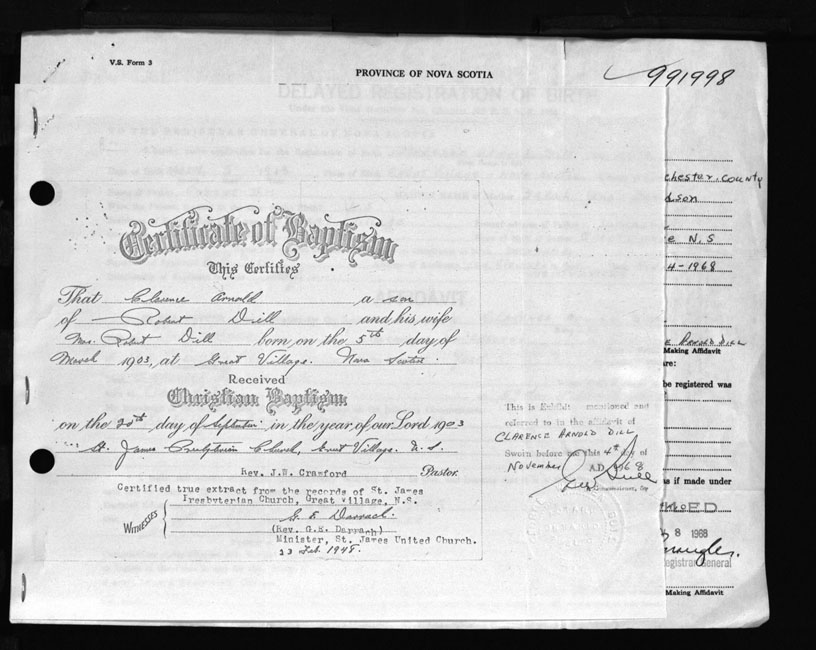 V.S. Form 3
PROVINCE OF NOVA SCOTIA
991998
DELAYED REGISTRATION OF BIRTH
TO THE REGISTRAR GENERAL OF NOVA SCOTIA
AFFIDAVIT
Certificate of Baptism
This Certifies
That Clarence Arnold a son
of Robert Dill and his wife
Mrs. Robert Dill born on the 5th day of
March 1903, at Great Village. Nova Scotia.
Received
Christian Baptism
on the 20th day of September in the year of our Lord 1903
St. James Presbyterian Church, Great Village. N.S.
Rev. J.W. Crawford Pastor.
Certified true extract from the records of St. James
Presbyterian Church, Great Village, N.S.
WITNESSES
G. E Darrach.
(Rev. G.E. Darrach)
Minister, St. James United Church.
23 Feb. 1948.
This is Exhibit mentioned and
referred to in the affidavit of
CLARENCE ARNOLD DILL
Sworn before me this 4th day of
November A.D. 1968
chester County
dson
e N.S
4-1968
e ARNOLD DILL
Making Affidavit
re:
be registered was
s if made under
8 1968
Registrar General
Making Affidavit